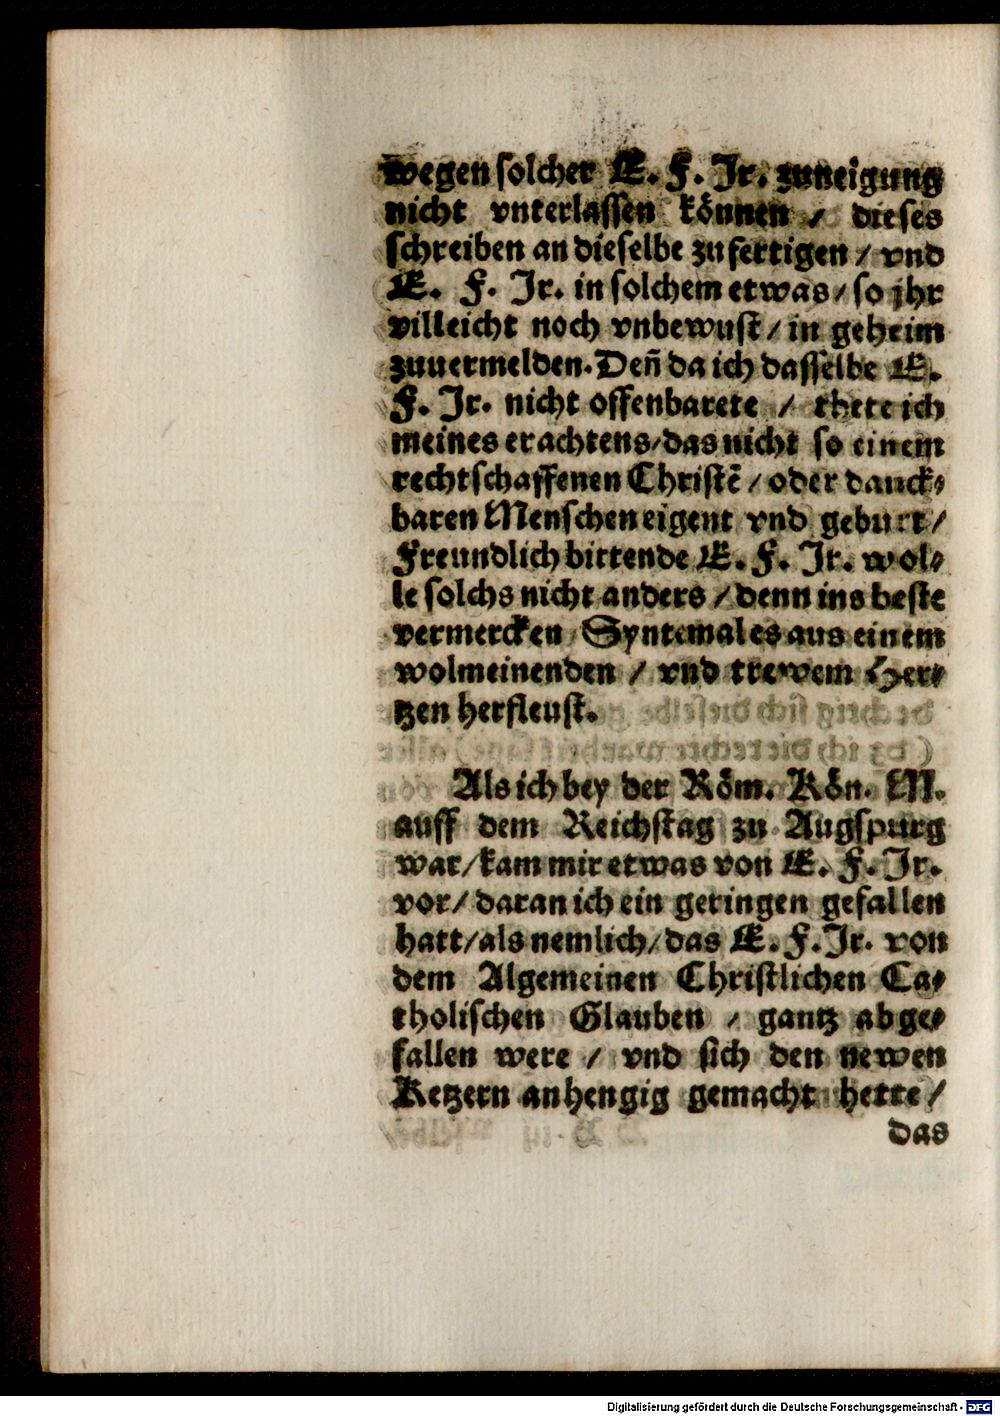 wegen solcher E. F. Jr. zuneigung
nicht vnterlassen können / dieses
schreiben an dieselbe zufertigen / vnd
E. F. Jr. in solchem etwas / so jhr
villeicht noch vnbewust / in geheim
zuuermelden. Deñ da ich dasselbe E.
F. Jr. nicht offenbarete / thete ich
meines erachtens / das nicht so einem
rechtschaffenen Christē / oder danck⸗
baren Menschen eigent vnd geburt /
Freundlich bittende E. F. Jr. wol⸗
le solchs nicht anders / denn ins beste
vermercken / Syntemal es aus einem
wolmeinenden / vnd trewem Her⸗
tzen herfleust.
Als ich bey der Röm. Kön. M.
auff dem Reichstag zu Augspurg
war / kam mir etwas von E. F. Jr.
vor / daran ich ein geringen gefallen
hatt / als nemlich / das E. F. Jr. von
dem Algemeinen Christlichen Ca⸗
tholischen Glauben / gantz abge⸗
fallen were / vnd sich den newen
Ketzern anhengig gemacht hette /
das
Digitalisierung gefördert durch die Deutsche Forschungsgemeinschaft - DFG